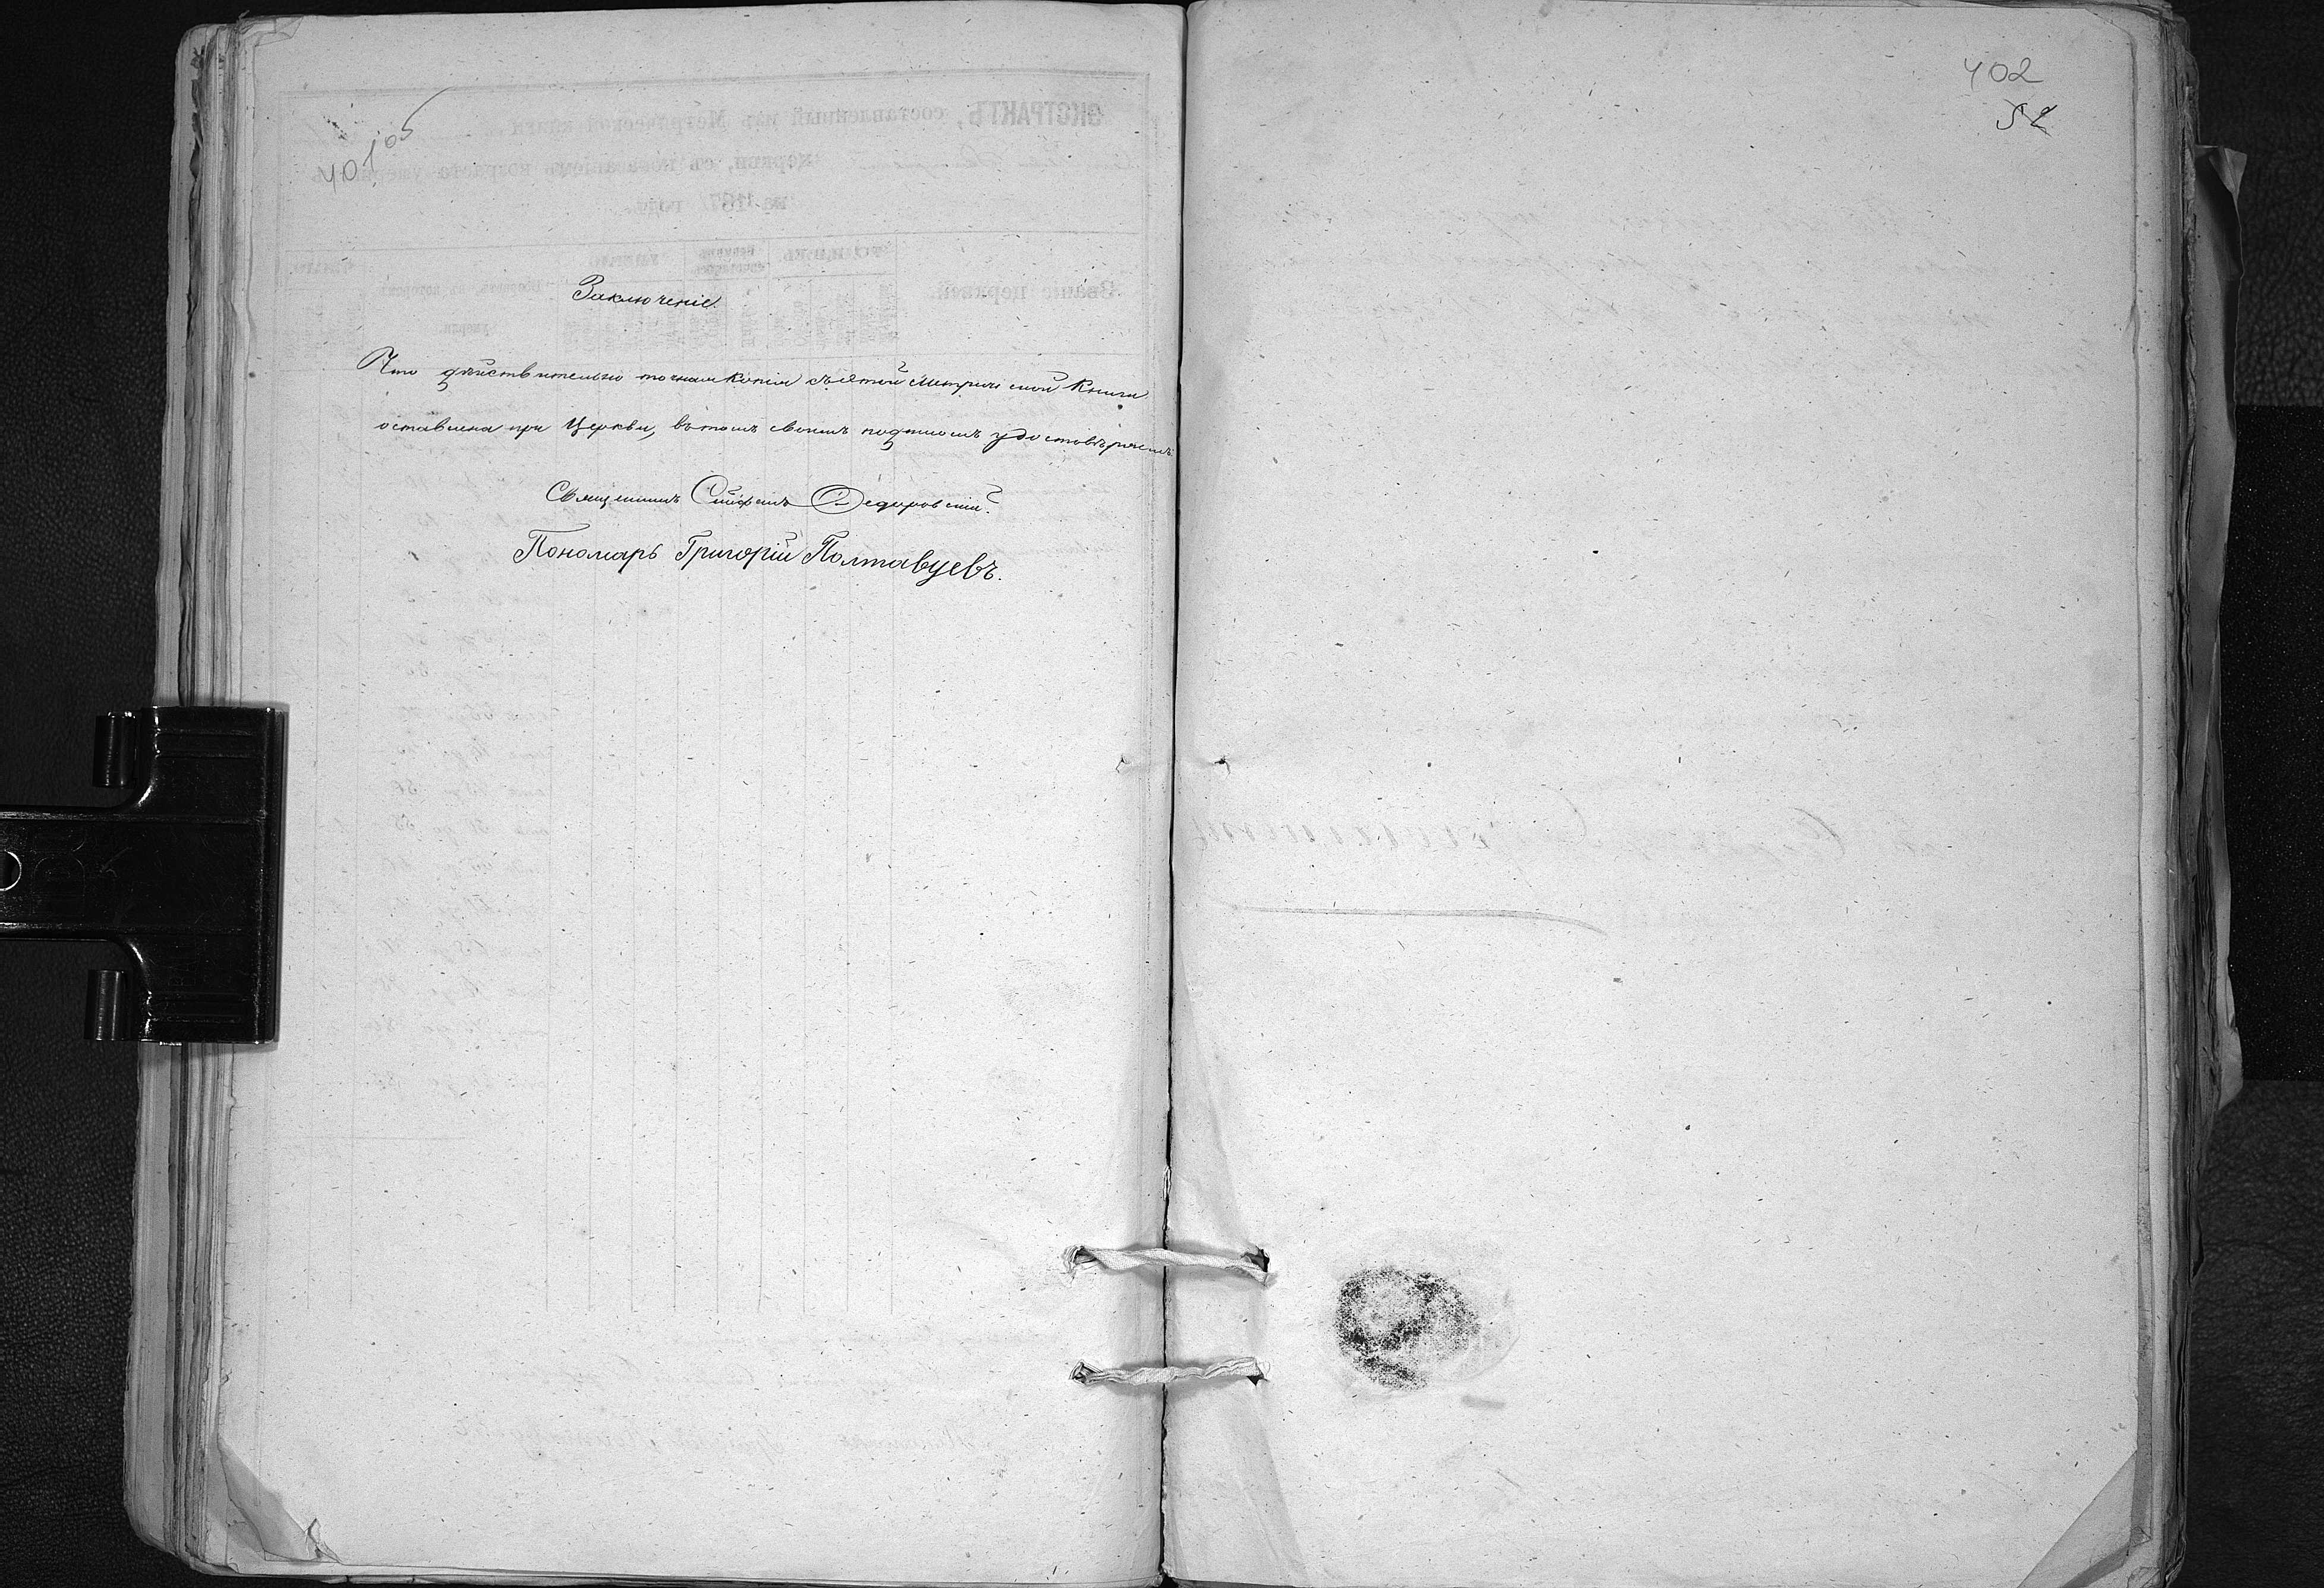 401 об
Заключеніе.
Что дѣйствительно точная копія съ этой Метрической Книги
оставлена при Церкви, въ томъ своимъ подписомъ удостовѣряемъ
Священникъ Федоровскій.
Пономарь Григорій Полтавцевъ.
402
52